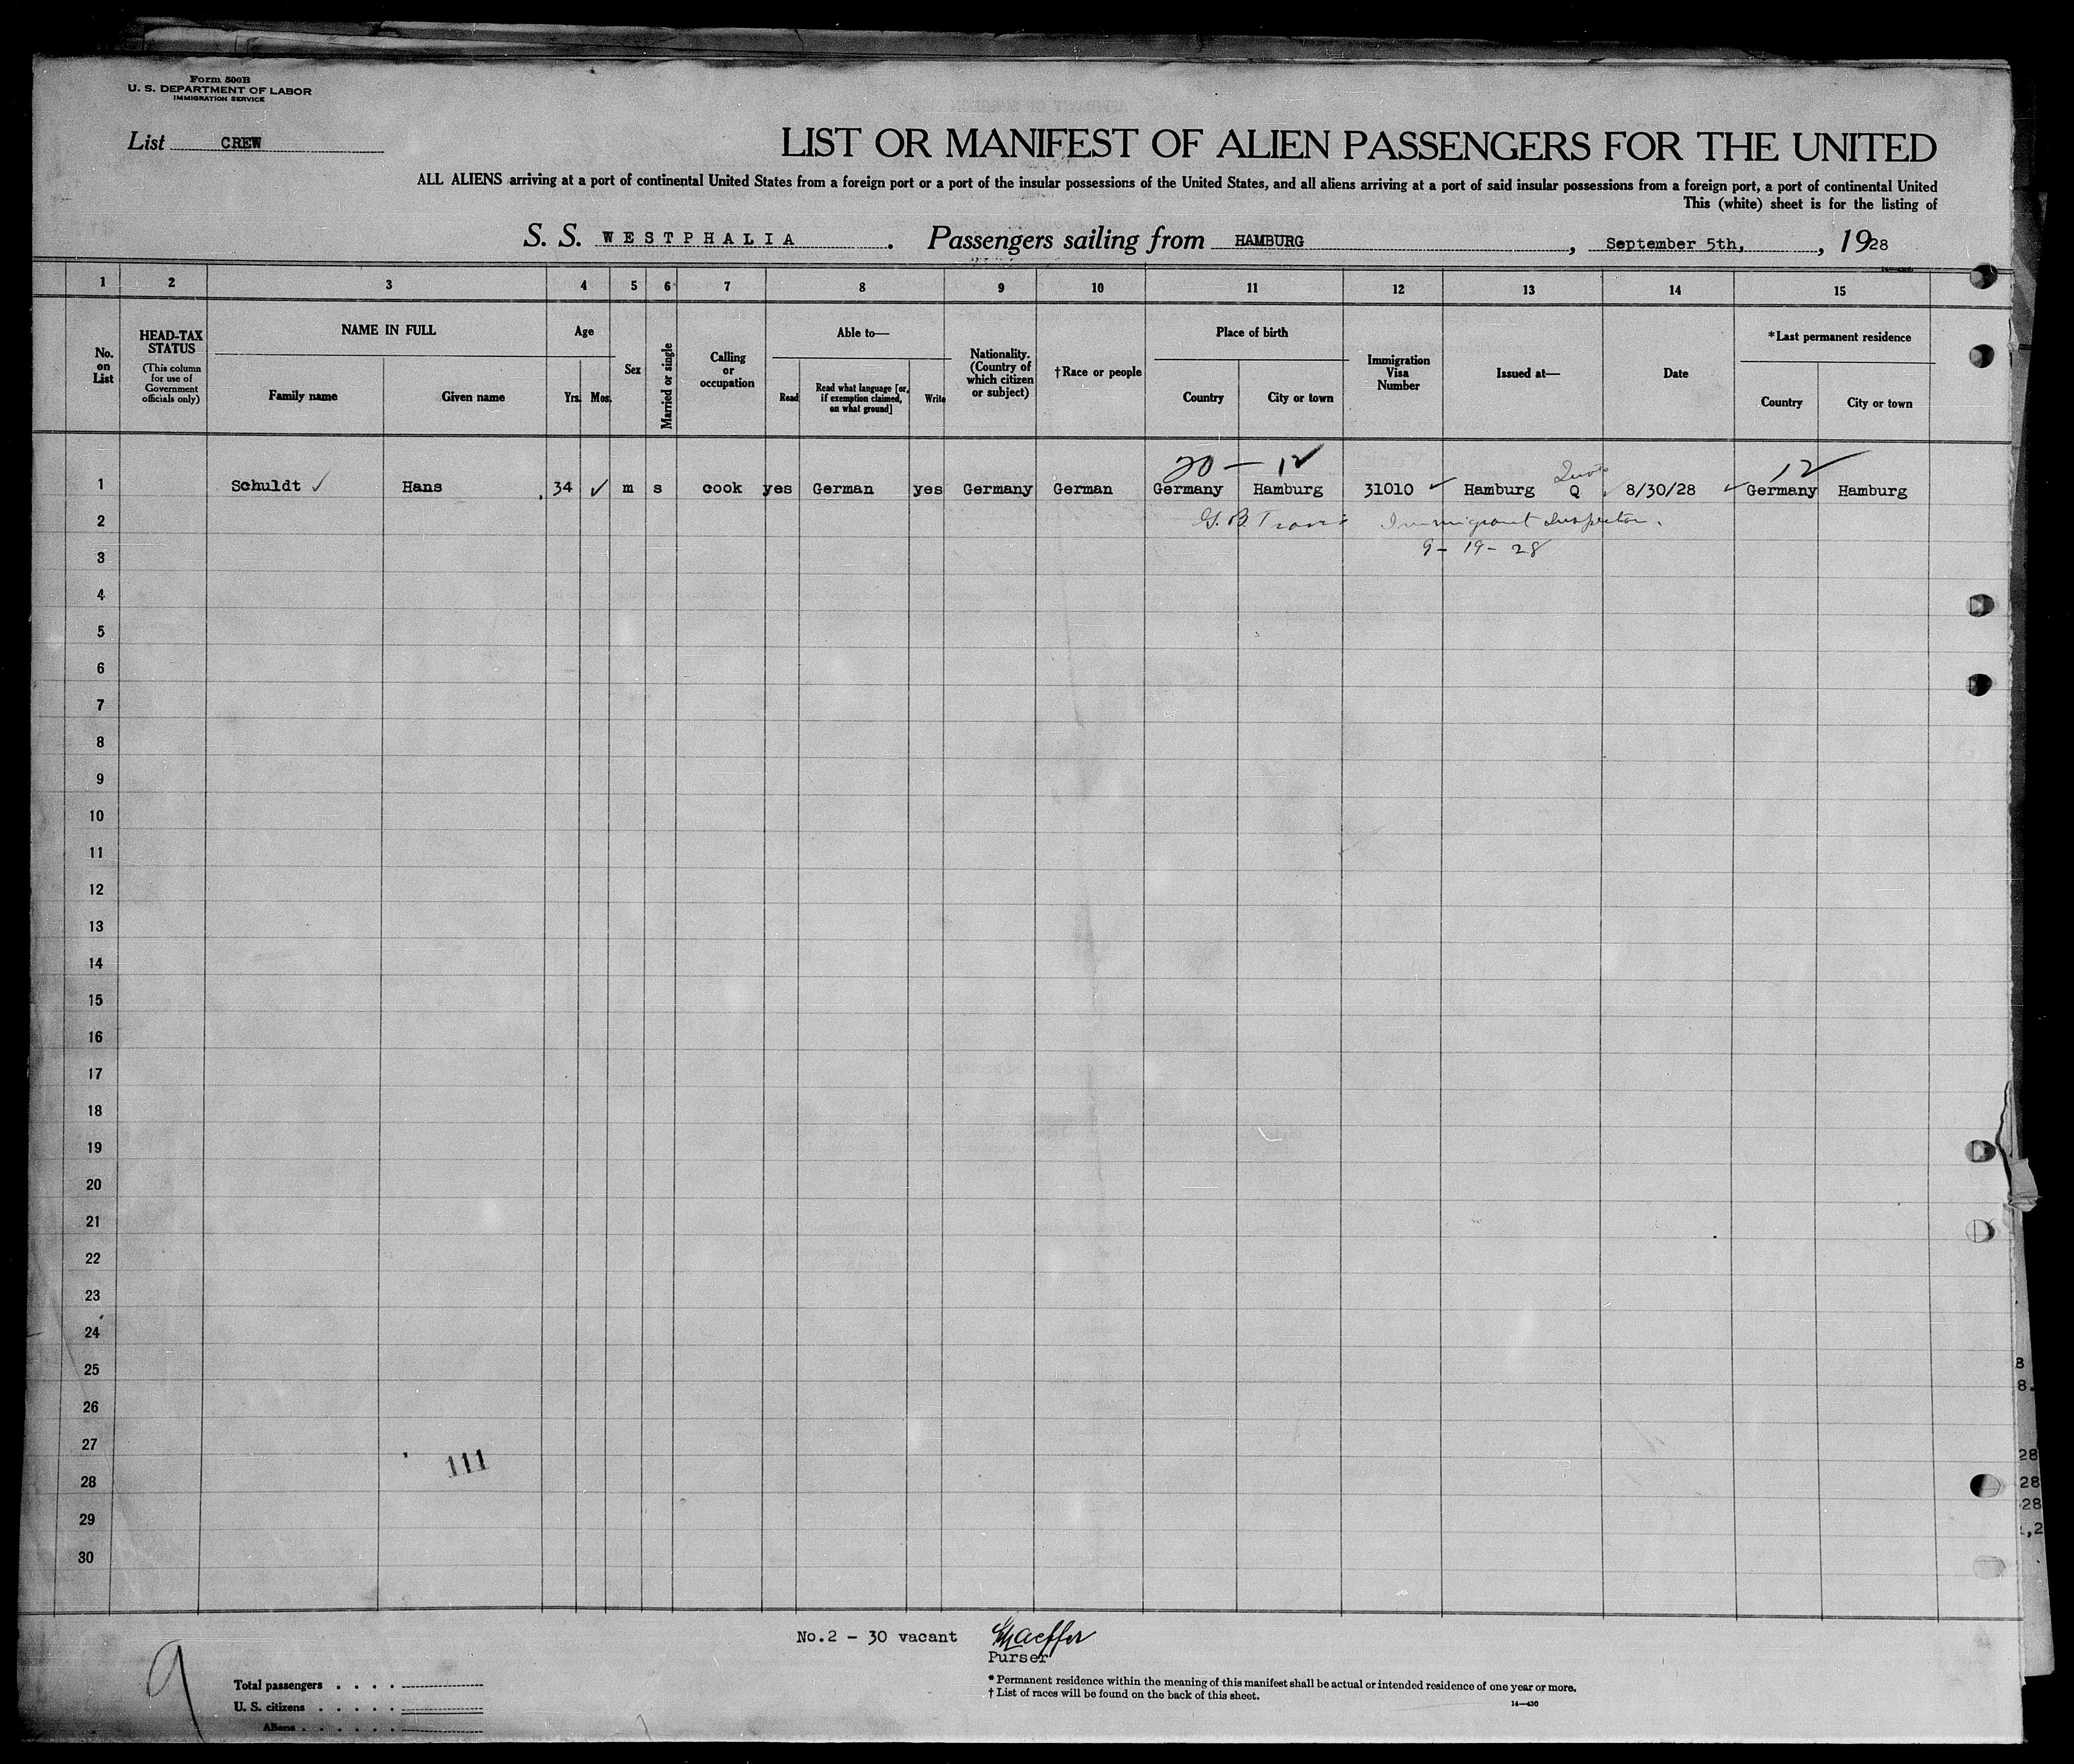 Form 500B
U. S. DEPARTMENT OF LABOR
IMMIGRATION SERVICE
List CREW
LIST OR MANIFEST OF ALIEN PASSENGERS FOR THE UNITED
ALL ALIENS arriving at a port of continental United States from a foreign port or a port of the insular possessions of the United States, and all aliens arriving at a port of said insular possessions from a foreign port, a port of continental United
This (white) sheet is for the listing of
S. S. WESTPHALIA. Passengers sailing from HAMBURG, September 5th,, 1928
1 2 3 4 5 6 7 8 9 10 11 12 13 14 15
No. on List
HEAD-TAX STATUS
(This column for use of Government officials only)
NAME IN FULL
Family name Given name
Age
Yrs. Mos.
Sex
Married or single
Calling or occupation
Able to—
Read
Read what language [or, if exemption claimed, on what ground]
Write
Nationality. (Country of which citizen or subject)
†Race or people
Place of birth
Country City or town
Immigration Visa Number
Issued at—
Date
*Last permanent residence
Country City or town
20 — 12 12
1 Schuldt ✓ Hans 34 ✓ m s cook yes German yes Germany German Germany Hamburg 31010 ✓ Hamburg Q ✓ 8/30/28 ✓ Germany Hamburg
2 Immigrant Inspector.
3 9-19-28
4
5
6
7
8
9
10
11
12
13
14
15
16
17
18
19
20
21
22
23
24
25
26
27
111
28
29
30
8
8.
28
28
28
1,2
No.2 - 30 vacant
Purser
9
Total passengers . . . .
U. S. citizens . . . . .
Aliens . . . . . .
* Permanent residence within the meaning of this manifest shall be actual or intended residence of one year or more.
† List of races will be found on the back of this sheet.
14—430